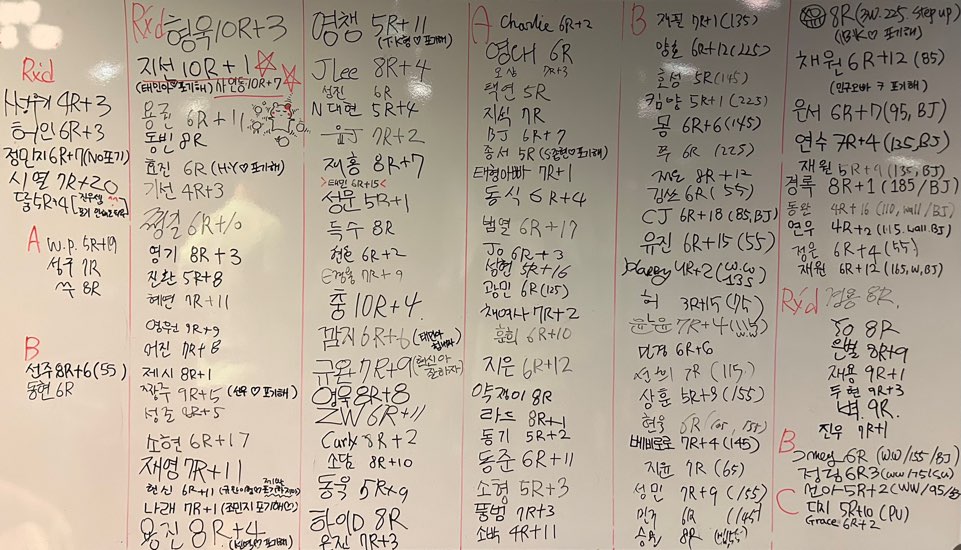 Rx'd
4R+3
허인 6R+3
정민지 6R+7 (No포기)
시열 7R+20
5R+4
A
W.P. 5R+19
성주 7R
8R
B
선주 8R+6 (55)
동현 6R
Rx'd 형욱 10R+3
지선 10R+1
(태민이♡포기해) 샤인동 10R+7
용군 6R+11
용빈 8R
효진 6R (H-Y♡포기해)
기선 4R+3
6R+10
영기 8R+3
진환 5R+8
혜연 7R+11
영무원 9R+9
어진 7R+8
제시 8R+1
짱주 9R+5 (선우♡포기해)
성준 8R+5
소현 6R+17
재영 7R+11
현신 6R+11
나래 7R+1 (조민지 포기해♡)
용진 8R+4
영챙 5R+11
(T-K형♡포기해)
JLee 8R+4
섬진 6R
N 대현 5R+4
윤J 7R+2
재홍 8R+7
>태민 6R+15<
성문 5R+1
득수 8R
현준 6R+2
7R+9
중 10R+4
깜지 6R+6
규완 7R+9 (현신아 잘하자)
영욱 8R+8
ZW 6R+11
Carly 8R+2
소담 8R+10
동욱 5R+9
하이D 8R
우진 7R+3
A Charlie 6R+2
영대 6R
오상 7R+3
택연 5R
지석 7R
BJ 6R+7
종서 5R
태형아빠 7R+1
동식 6R+4
범열 6R+17
Jo 6R+3
성현 5R+16
광민 6R (125)
채여사 7R+2
훈희 6R+10
지은 6R+12
약쟁이 8R
라드 8R+1
동기 5R+2
동준 6R+11
소형 5R+3
풍범 7R+3
소박 4R+11
B 재필 7R+1 (135)
양호 6R+12 (225)
호성 5R (145)
킴양 5R+1 (225)
몽 6R+6 (145)
쭈 6R (225)
지도 8R+12
김쓰 6R (55)
CJ 6R+18 (85, BJ)
유진 6R+15 (55)
Harry 4R+2 (W.W 135)
허 3R+15 (75)
윤노윤 7R+4 (W.W)
미경 6R+6
선희 7R (115)
상훈 5R+9 (155)
현욱 6R
베베로로 7R+4 (145)
지윤 7R (65)
성민 7R+9 (155)
민구 6R (145)
승원 8R
8R (3W. 225. step up)
(B.K♡포기해)
채원 6R+12 (85)
(민규오빠 ㅋ 포기해)
은서 6R+17 (95, BJ)
연수 7R+4 (135, BJ)
재원 5R+9 (135, BJ)
경록 8R+1 (185/BJ)
동완 4R+16 (110, wall/BJ)
연우 4R+2 (115. wall. BJ)
정을 6R+4 (55)
재원 6R+12 (165, W, BJ)
Rx'd 정용 8R.
JO 8R
은별 8R+9
재용 9R+1
두현 9R+3
벽 9R.
진우 9R+1
B
Jmey 6R (WW/155/BJ)
6R3
C
선아 5R+2
다시 5R+10 (PU)
Grace 6R+2